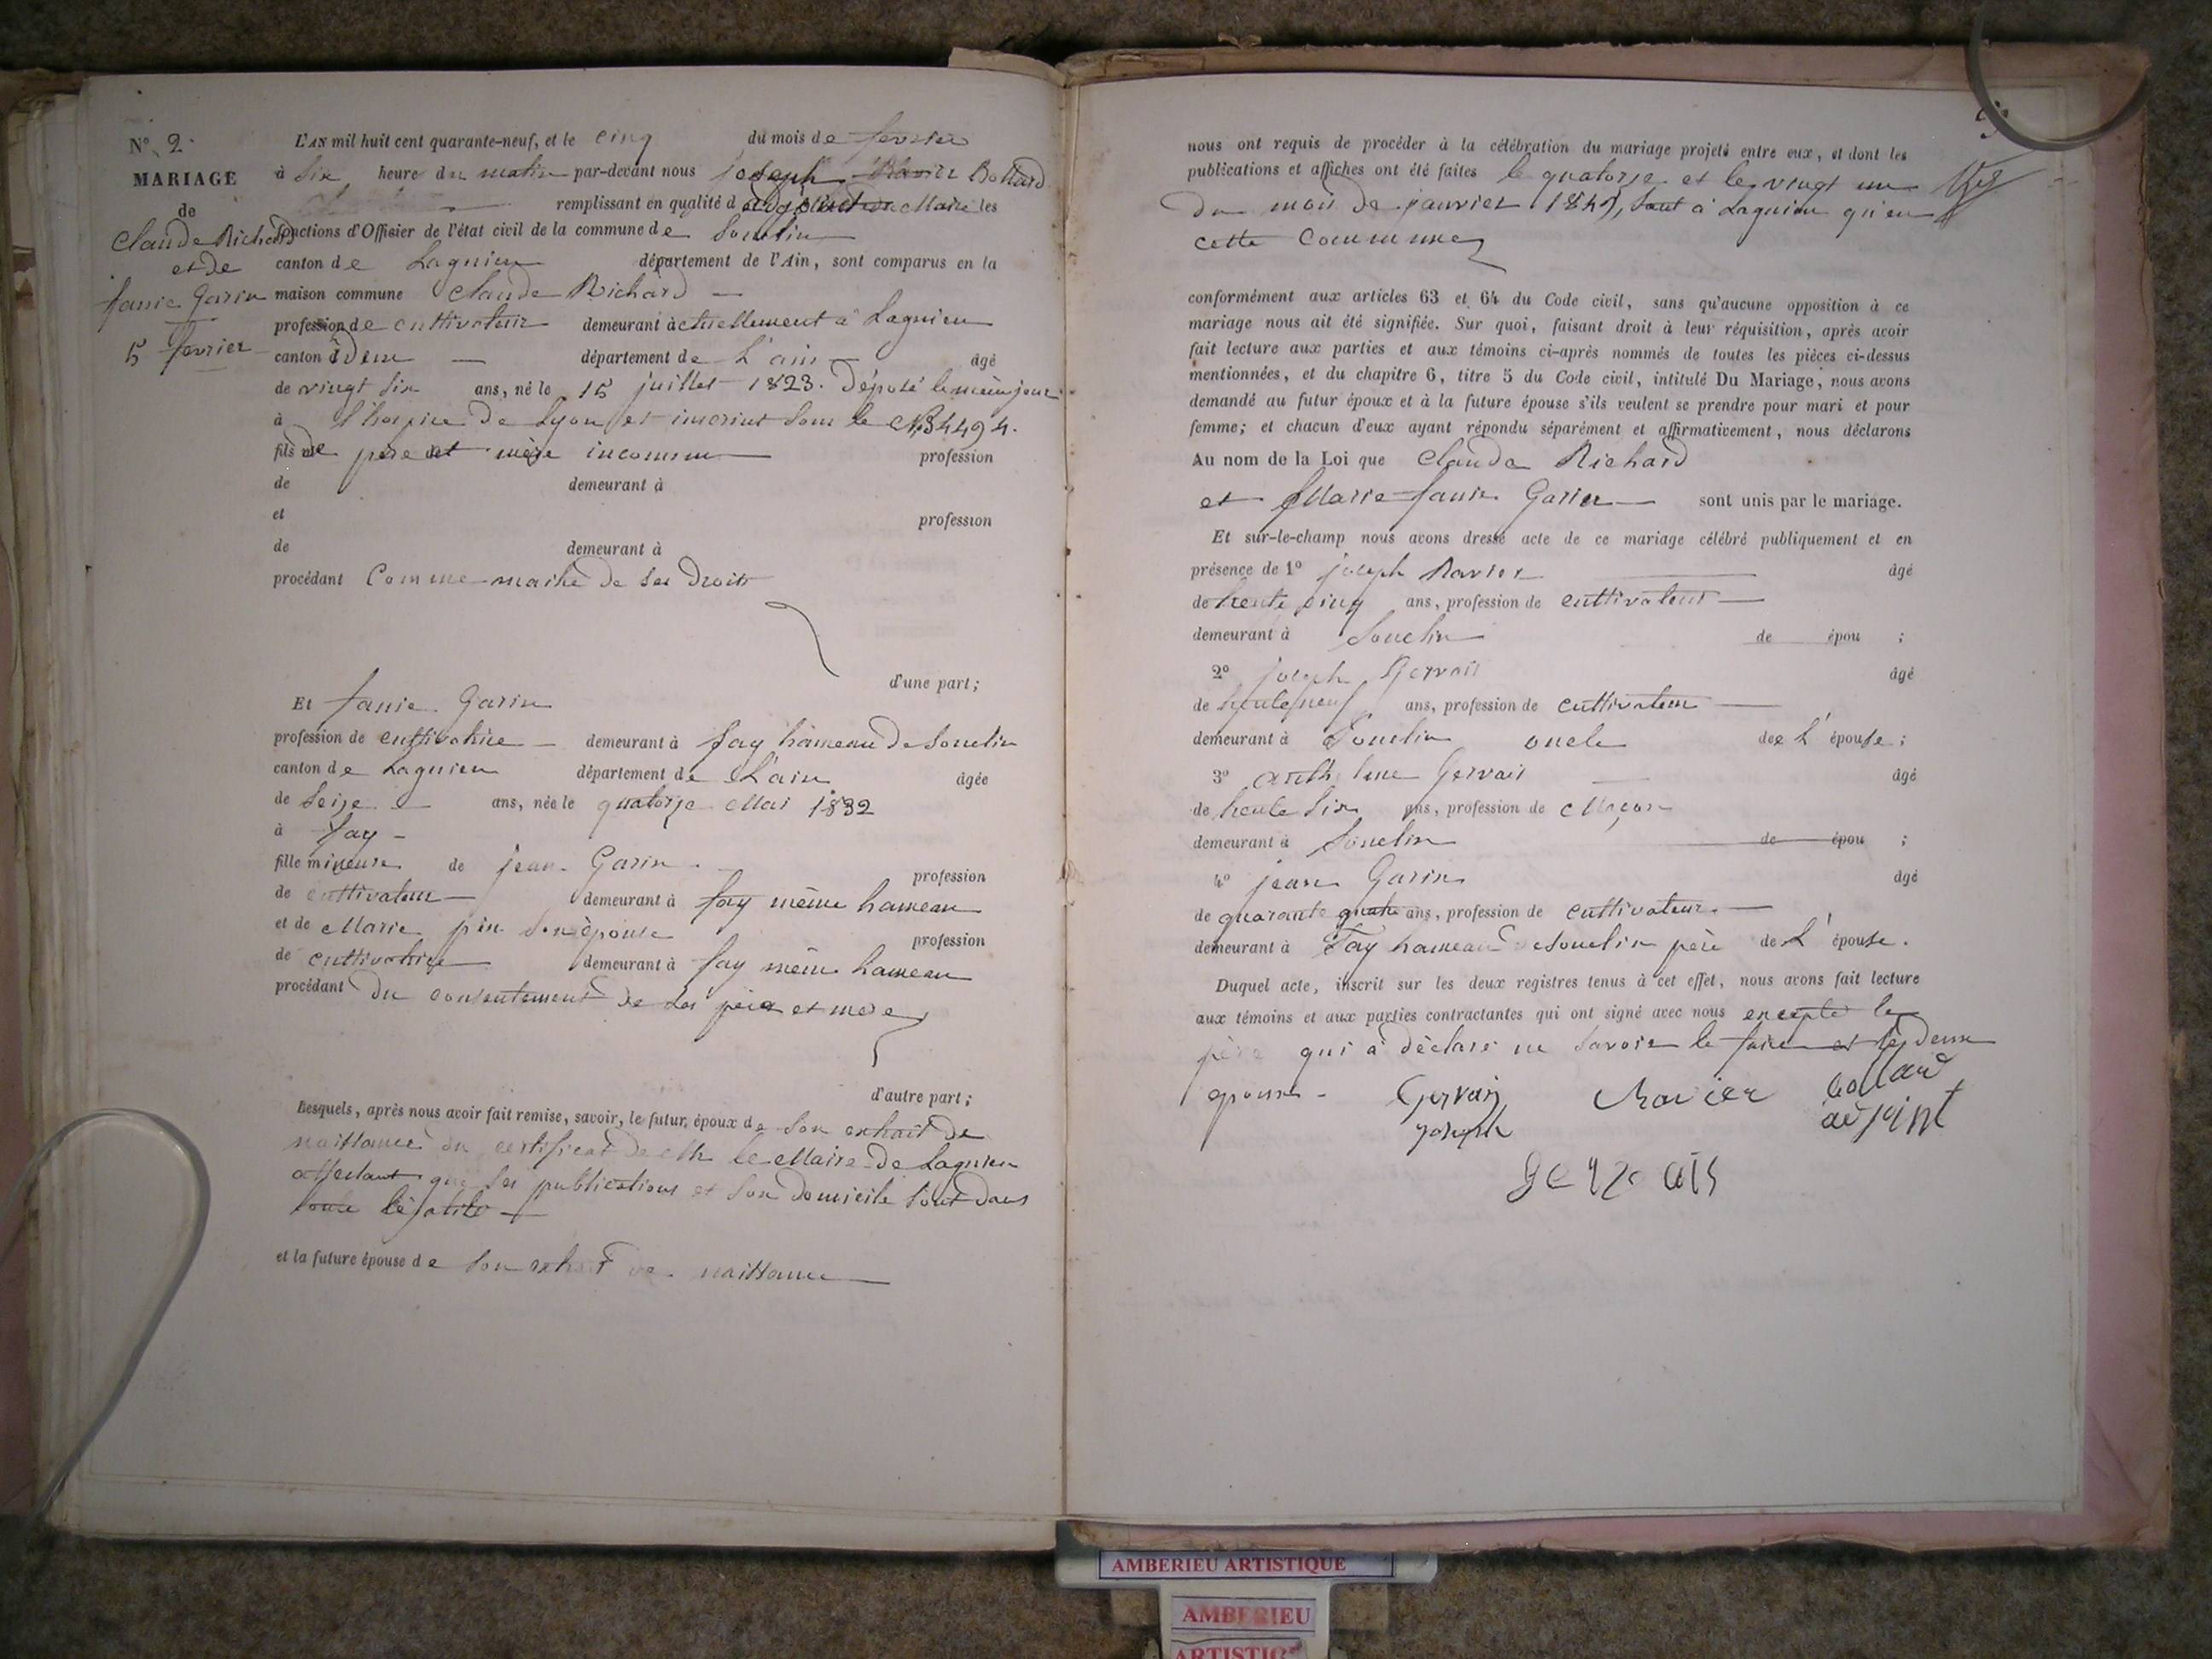 N° 2.
MARIAGE
de
Claude Richard
et de
fanie Garin
5 fevrier
L'AN mil huit cent quarante-neuf, et le cinq du mois de fevrier
à six heure du matin par-devant nous joseph Ravier Bollard
remplissant en qualité d adjoint Maire les
fonctions d'Officier de l'état civil de la commune de Souclin
canton de Lagnieu département de l'Ain, sont comparus en la
maison commune Claude Richard
profession de cultivateur demeurant actuellement à Lagnieu
canton idem département de L'ain âgé
de vingt six ans, né le 15 juillet 1823. Déposé le même jour
à l'hospice de Lyon et inscrint sous le N° 34494.
fils de père et mère inconnu profession
de demeurant à
et profession
de demeurant à
procédant Comme maitre de ses Droits
d'une part;
Et fanie Garin
profession de cultivatrice demeurant à fay hameau de Souclin
canton de Lagnieu département de L'ain âgée
de Seize ans, née le quatorze Mai 1832
à fay
fille mineure de jean Garin profession
de cultivateur demeurant à fay même hameau
et de Marie pin son épouse profession
de cultivatrice demeurant à fay même hameau
procédant du consentement de ses père et mere
d'autre part;
Lesquels, après nous avoir fait remise, savoir, le futur, époux de Son extrait de
naissance un certificat de Mr le Maire de Lagnieu
attestant que ses publications et son domicile sont dans
toute légalité
et la future épouse de Son extrait de naissance
nous ont requis de procéder à la célébration du mariage projeté entre eux, et dont les
publications et affiches ont été faites le quatorze et le vingt un
Du mois de janvier 1849, tant à Lagnieu qu'en
cette Commune
conformément aux articles 63 et 64 du Code civil, sans qu'aucune opposition à ce
mariage nous ait été signifiée. Sur quoi, faisant droit à leur réquisition, après avoir
fait lecture aux parties et aux témoins ci-après nommés de toutes les pièces ci-dessus
mentionnées, et du chapitre 6, titre 5 du Code civil, intitulé Du Mariage, nous avons
demandé au futur époux et à la future épouse s'ils veulent se prendre pour mari et pour
femme; et chacun d'eux ayant répondu séparément et affirmativement, nous déclarons
Au nom de la Loi que Claude Richard
et Marie fanie Garin sont unis par le mariage.
Et sur-le-champ nous avons dressé acte de ce mariage célébré publiquement et en
présence de 1° joseph Ravier âgé
de trente cinq ans, profession de cultivateur
demeurant à Souclin de épou ;
2° joseph Gervais âgé
de trente neuf ans, profession de cultivateur
demeurant à Souclin oncle de L'épouse ;
3° anthelme Gervais âgé
de trente six ans, profession de Maçon
demeurant à Souclin de épou ;
4° jean Garin âgé
de quarante quatre ans, profession de cultivateur
demeurant à Fay hameau de Souclin père de L'épouse.
Duquel acte, inscrit sur les deux registres tenus à cet effet, nous avons fait lecture
aux témoins et aux parties contractantes qui ont signé avec nous excepté le
père qui à déclaré ne savoir le faire et les deux
epoux
Gervais Ravier bollard
joseph adjoint
gervais
AMBERIEU ARTISTIQUE
AMBERIEU
ARTISTIQ